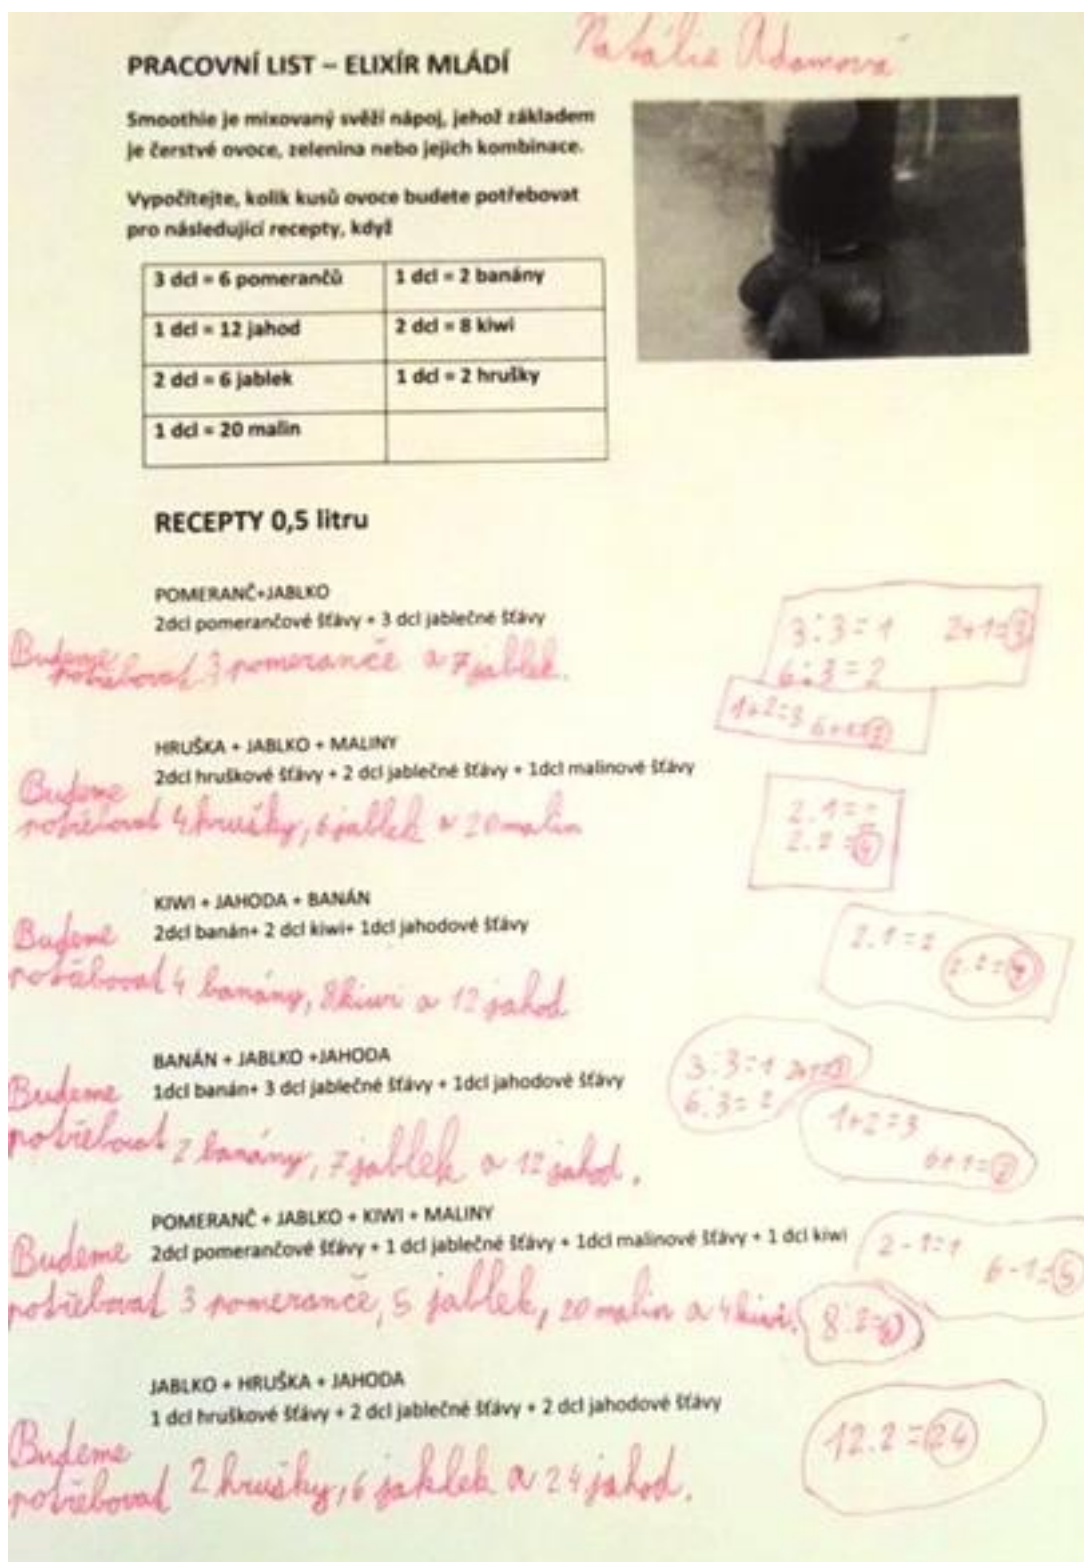 Natálie Adamová
PRACOVNÍ LIST – ELIXÍR MLÁDÍ
Smoothie je mixovaný svěží nápoj, jehož základem
je čerstvé ovoce, zelenina nebo jejich kombinace.
Vypočítejte, kolik kusů ovoce budete potřebovat
pro následující recepty, když
3 dcl = 6 pomerančů 1 dcl = 2 banány
1 dcl = 12 jahod 2 dcl = 8 kiwi
2 dcl = 6 jablek 1 dcl = 2 hrušky
1 dcl = 20 malin
RECEPTY 0,5 litru
POMERANČ+JABLKO
2dcl pomerančové šťávy + 3 dcl jablečné šťávy
Budeme
potřebovat 3 pomeranče a 7 jablek.
3:3=1 2+1=3
6:3=2
1+2=3 6+1=7
HRUŠKA + JABLKO + MALINY
2dcl hruškové šťávy + 2 dcl jablečné šťávy + 1dcl malinové šťávy
Budeme
potřebovat 4 hrušky, 6 jablek a 20 malin
2.1=2
2.2=4
KIWI + JAHODA + BANÁN
2dcl banán+ 2 dcl kiwi+ 1dcl jahodové šťávy
Budeme
potřebovat 4 banány, 8 kiwi a 12 jahod
2.1=2
2.2=4
BANÁN + JABLKO +JAHODA
1dcl banán+ 3 dcl jablečné šťávy + 1dcl jahodové šťávy
Budeme
potřebovat 2 banány, 7 jablek a 12 jahod.
3:3=1 2+1=3
6:3=2
1+2=3
6+1=7
POMERANČ + JABLKO + KIWI + MALINY
2dcl pomerančové šťávy + 1 dcl jablečné šťávy + 1dcl malinové šťávy + 1 dcl kiwi
Budeme
potřebovat 3 pomeranče, 5 jablek, 20 malin a 4 kiwi.
2-1=1
6-1=5
8:2=4
JABLKO + HRUŠKA + JAHODA
1 dcl hruškové šťávy + 2 dcl jablečné šťávy + 2 dcl jahodové šťávy
Budeme
potřebovat 2 hrušky, 6 jaklek a 24 jahod.
12.2=24